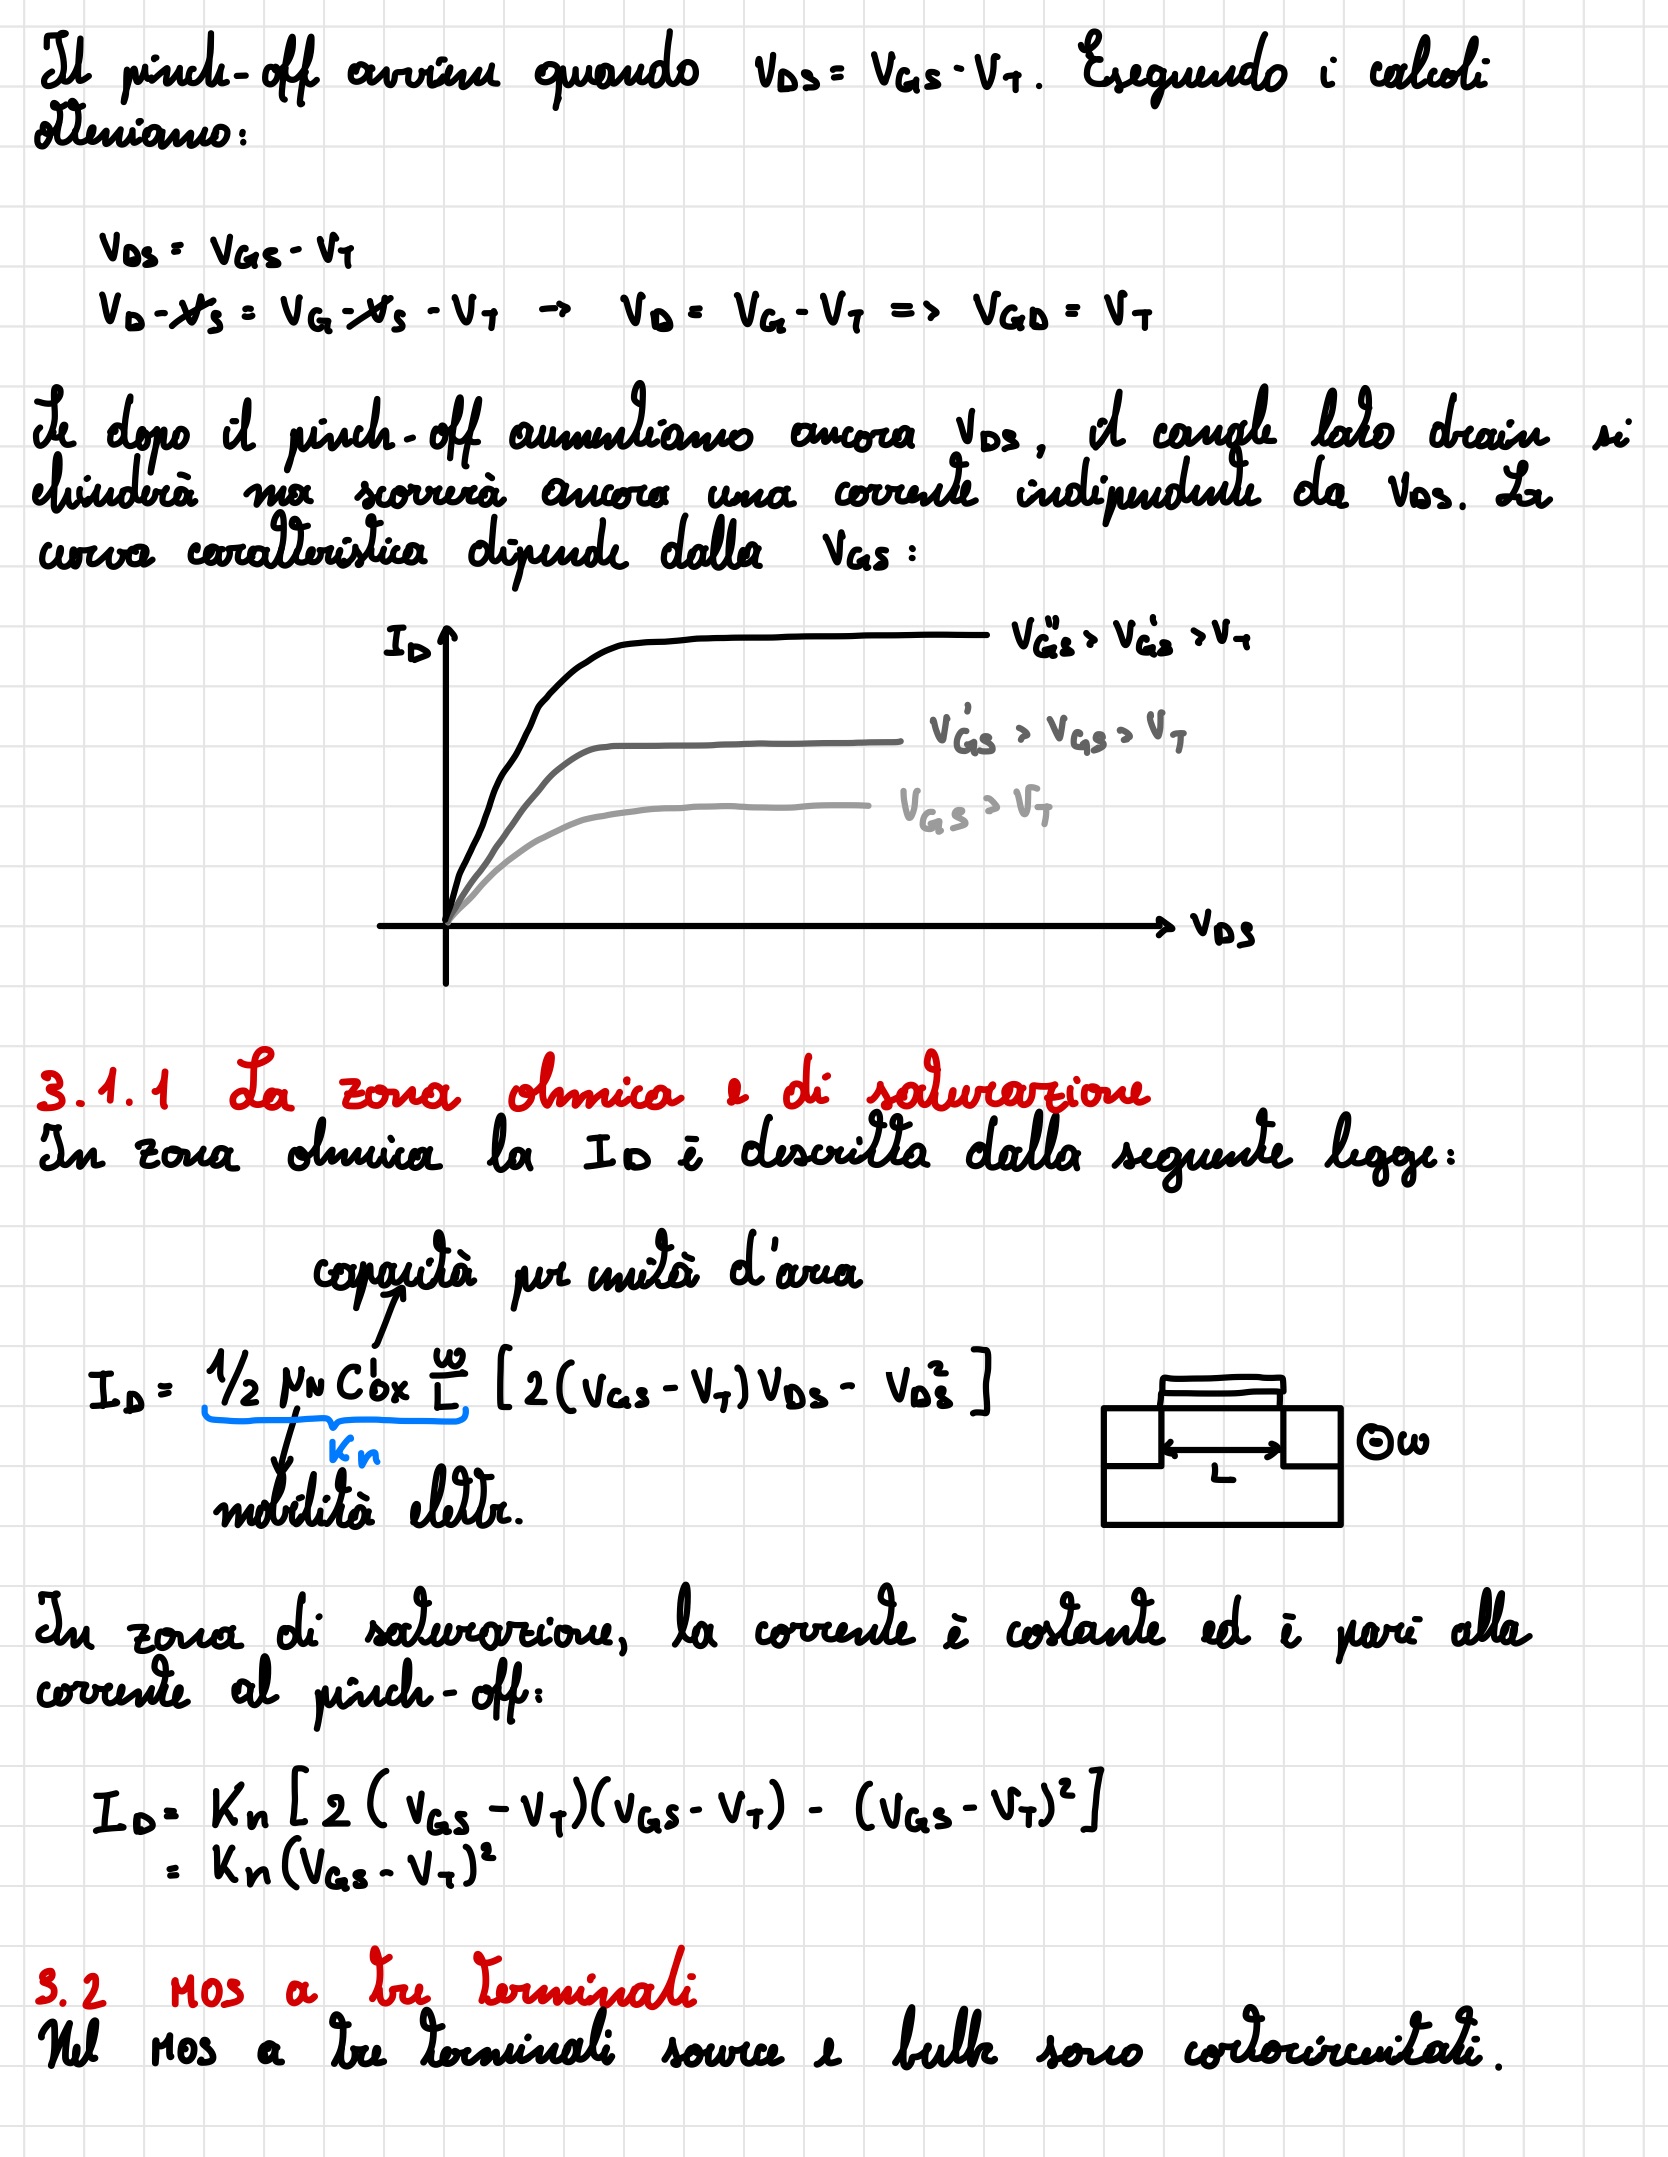 Il pinch-off avviene quando V_DS = V_GS - V_T. Eseguendo i calcoli
otteniamo:
V_DS = V_GS - V_T
V_D - V_S = V_G - V_S - V_T → V_D = V_G - V_T => V_GD = V_T
Se dopo il pinch-off aumentiamo ancora V_DS, il canale lato drain si
chiuderà ma scorrerà ancora una corrente indipendente da V_DS. La
curva caratteristica dipende dalla V_GS:
I_D
V''_GS > V'_GS > V_T
V'_GS > V_GS > V_T
V_GS > V_T
V_DS
3.1.1 La zona ohmica e di saturazione
In zona ohmica la I_D è descritta dalla seguente legge:
capacità per unità d'area
I_D = 1/2 μ_N C'_ox W/L [2(V_GS - V_T)V_DS - V_DS²]
K_n
L
⊙W
mobilità elettr.
In zona di saturazione, la corrente è costante ed è pari alla
corrente al pinch-off:
I_D = K_n [2(V_GS - V_T)(V_GS - V_T) - (V_GS - V_T)²]
= K_n(V_GS - V_T)²
3.2 MOS a tre terminali
Nel MOS a tre terminali source e bulk sono cortocircuitati.